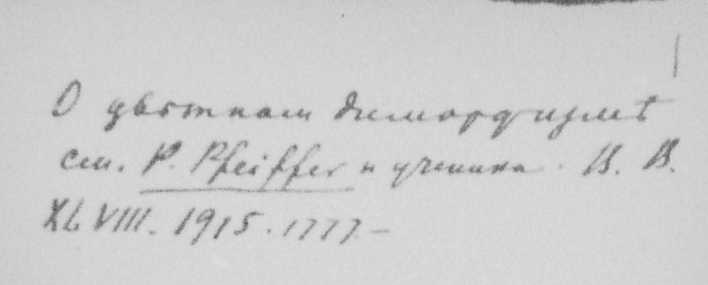 О цвѣтном диморфизмѣ
см. P. Pfeiffer и ученики. B. B.
XLVIII. 1915. 1777.–